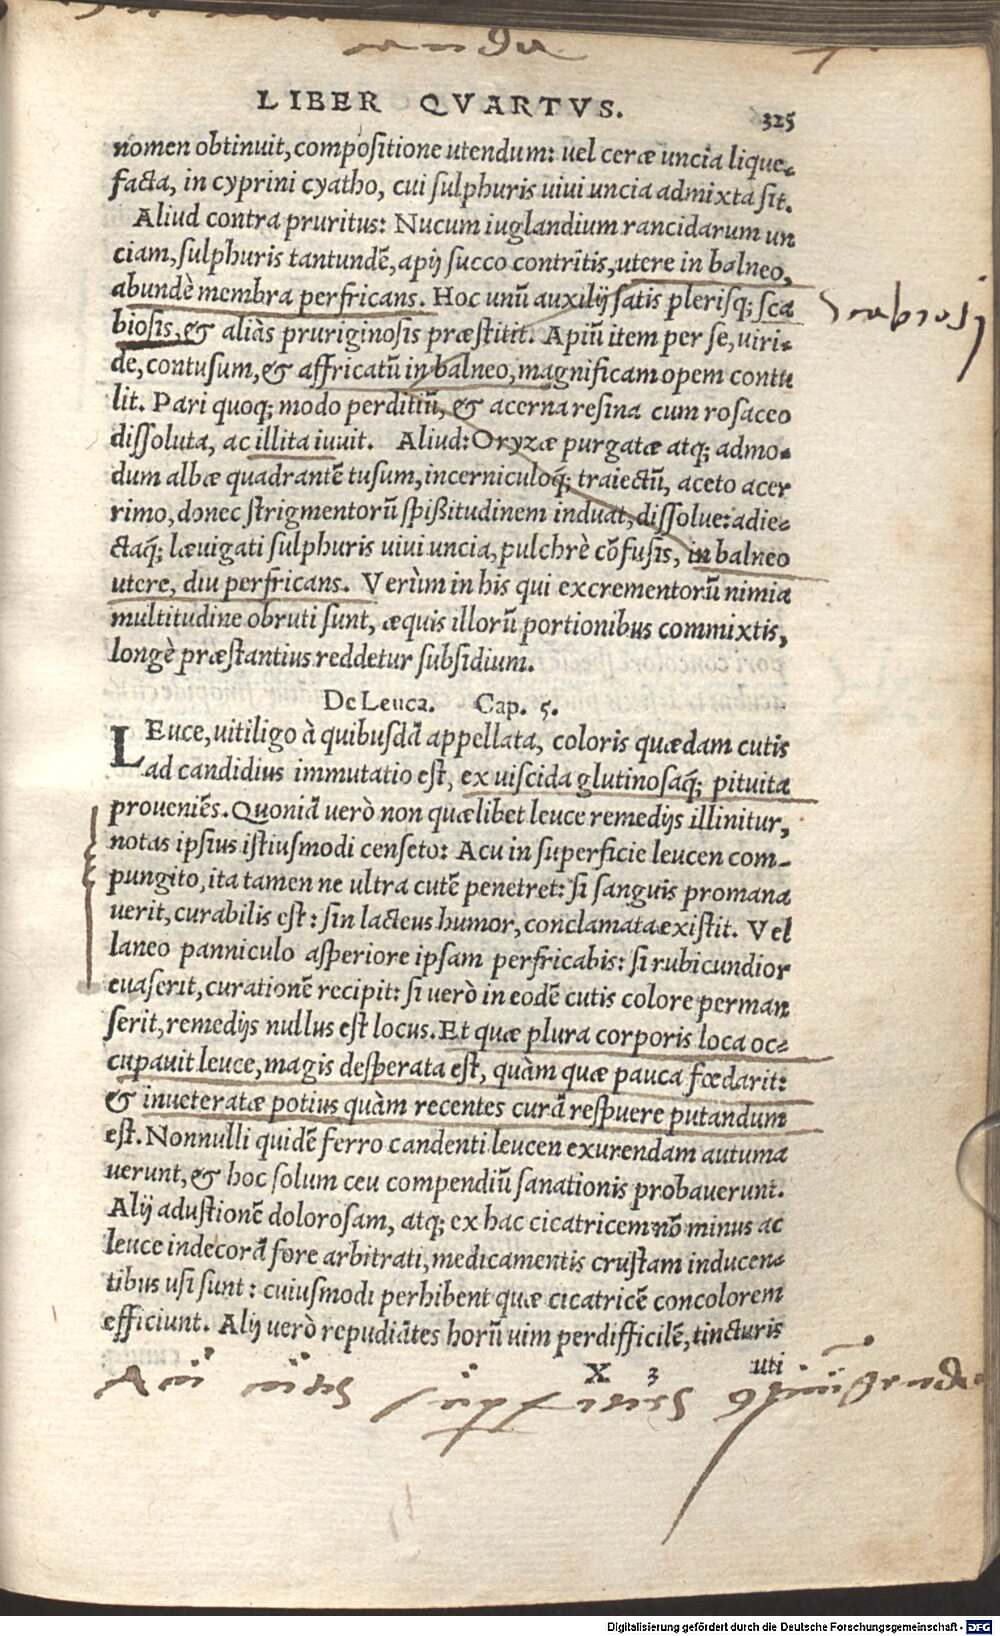 LIBER QVARTVS. 325
nomen obtinuit, compositione utendum: uel ceræ uncia lique-
facta, in cyprini cyatho, cui sulphuris uiui uncia admixta sit.
Aliud contra pruritus: Nucum iuglandium rancidarum un
ciam, sulphuris tantundē, apij succo contritis, utere in balneo,
abundè membra perfricans. Hoc unū auxilij satis plerisq; sca
biosis, & aliàs pruriginosis præstitit. Apiū item per se, uiri-
de, contusum, & affricatū in balneo, magnificam opem contu
lit. Pari quoq; modo perditiū, & acerna resina cum rosaceo
dissoluta, ac illita iuuit. Aliud: Oryzæ purgatæ atq; admo-
dum albæ quadrantē tusum, incerniculoq́; traiectū, aceto acer
rimo, donec strigmentorū spißitudinem induat, dissolue: adie-
ctaq́; læuigati sulphuris uiui uncia, pulchrè cōfusis, in balneo
utere, diu perfricans. Verùm in his qui excrementorū nimia
multitudine obruti sunt, æquis illorū portionibus commixtis,
longè præstantius reddetur subsidium.
De Leuca. Cap. 5.
LEuce, uitiligo à quibusdā appellata, coloris quædam cutis
ad candidius immutatio est, ex uiscida glutinosaq́; pituita
proueniēs. Quoniā verò non quælibet leuce remedijs illinitur,
notas ipsius istiusmodi censeto: Acu in superficie leucen com-
pungito, ita tamen ne ultra cutē penetret: si sanguis promana
uerit, curabilis est: sin lacteus humor, conclamata existit. Vel
laneo panniculo asperiore ipsam perfricabis: si rubicundior
euaserit, curationē recipit: si uerò in eodē cutis colore perman
serit, remedijs nullus est locus. Et quæ plura corporis loca oc-
cupauit leuce, magis desperata est, quàm quæ pauca fœdarit:
& inueteratæ potius quàm recentes curā respuere putandum
est. Nonnulli quidē ferro candenti leucen exurendam autuma
uerunt, & hoc solum ceu compendiū sanationis probauerunt.
Alij adustionē dolorosam, atq; ex hac cicatricem nō minus ac
leuce indecorā fore arbitrati, medicamentis crustam inducen-
tibus usi sunt: cuiusmodi perhibent quæ cicatricē concolorem
efficiunt. Alij uerò repudiātes horū uim perdifficilē, tincturis
X 3 uti
Digitalisierung gefördert durch die Deutsche Forschungsgemeinschaft - DFG